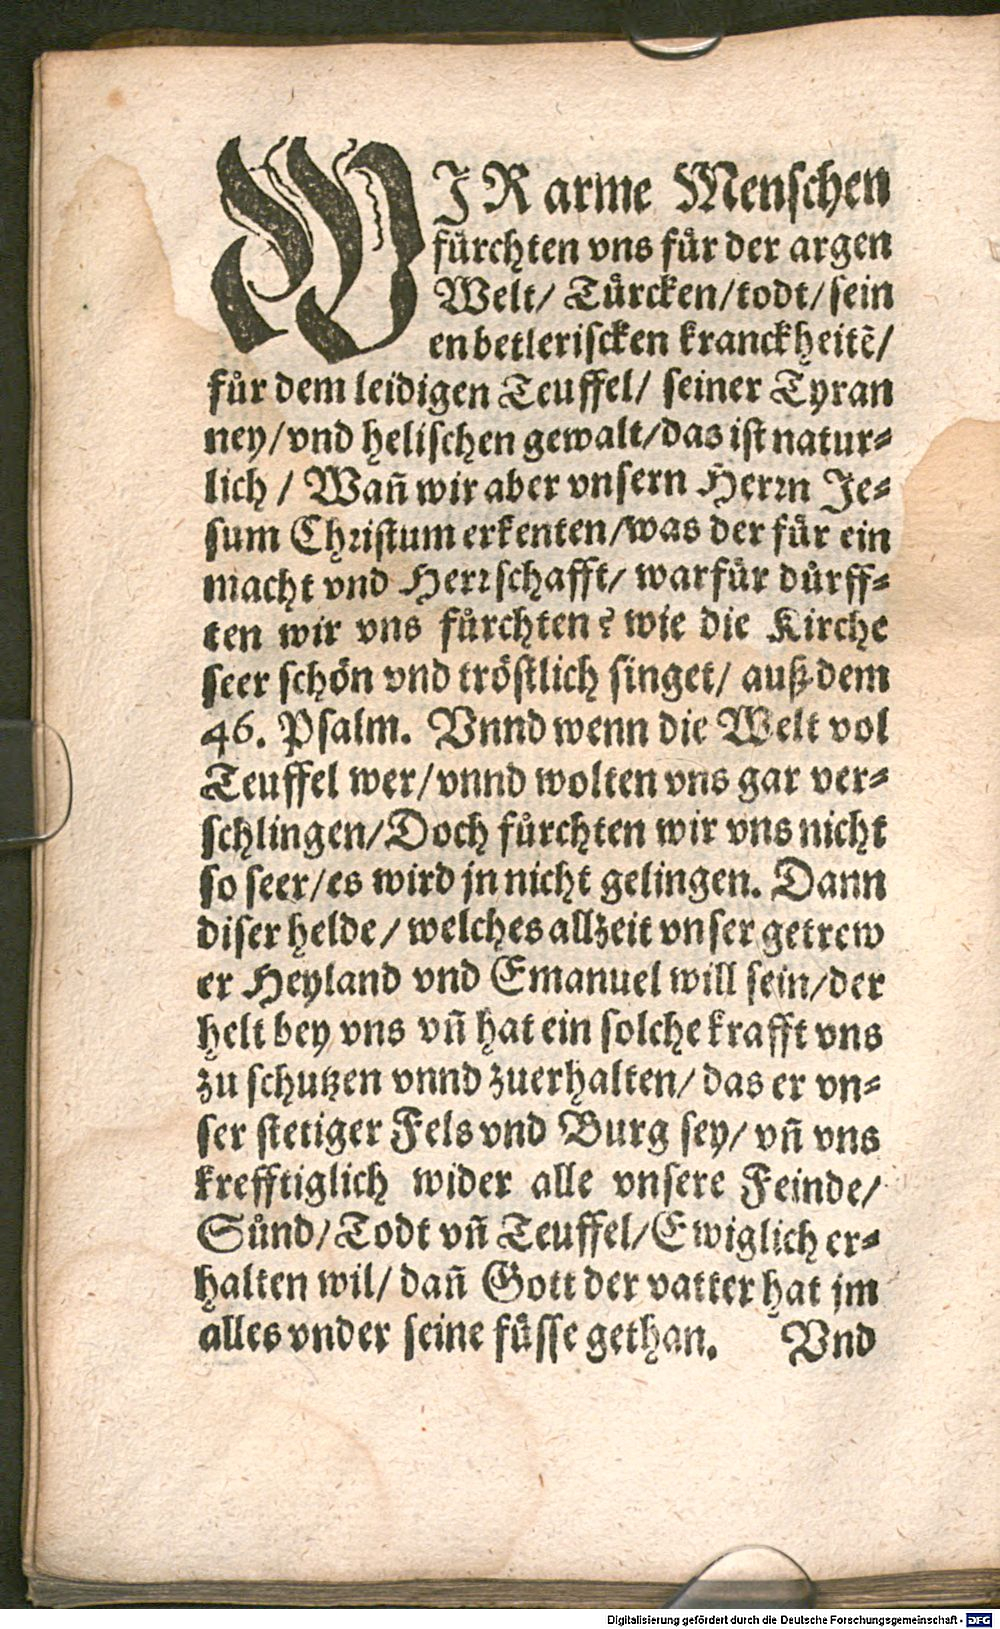 WIR arme Menschen
fürchten vns für der argen
Welt/ Türcken/todt/sein
en betleriscken kranckheitẽ/
für dem leidigen Teuffel/ seiner Tyran
ney/vnd helischen gewalt/das ist natur-
lich / Wañ wir aber vnsern Herrn Je-
sum Christum erkenten/was der für ein
macht vnd Herrschafft/ warfür dürff-
ten wir vns fürchten? wie die Kirche
seer schön vnd tröstlich singet/ auß dem
46. Psalm. Vnnd wenn die Welt vol
Teuffel wer/vnnd wolten vns gar ver-
schlingen/Doch fürchten wir vns nicht
so seer/es wird jn nicht gelingen. Dann
diser helde/ welches allzeit vnser getrew
er Heyland vnd Emanuel will sein/der
helt bey vns vñ hat ein solche krafft vns
zu schutzen vnnd zuerhalten/ das er vn-
ser stetiger Fels vnd Burg sey/ vñ vns
krefftiglich wider alle vnsere Feinde/
Sünd/Todt vñ Teuffel/Ewiglich er-
halten wil/ dañ Gott der vatter hat jm
alles vnder seine füsse gethan. Vnd
Digitalisierung gefördert durch die Deutsche Forschungsgemeinschaft - DFG